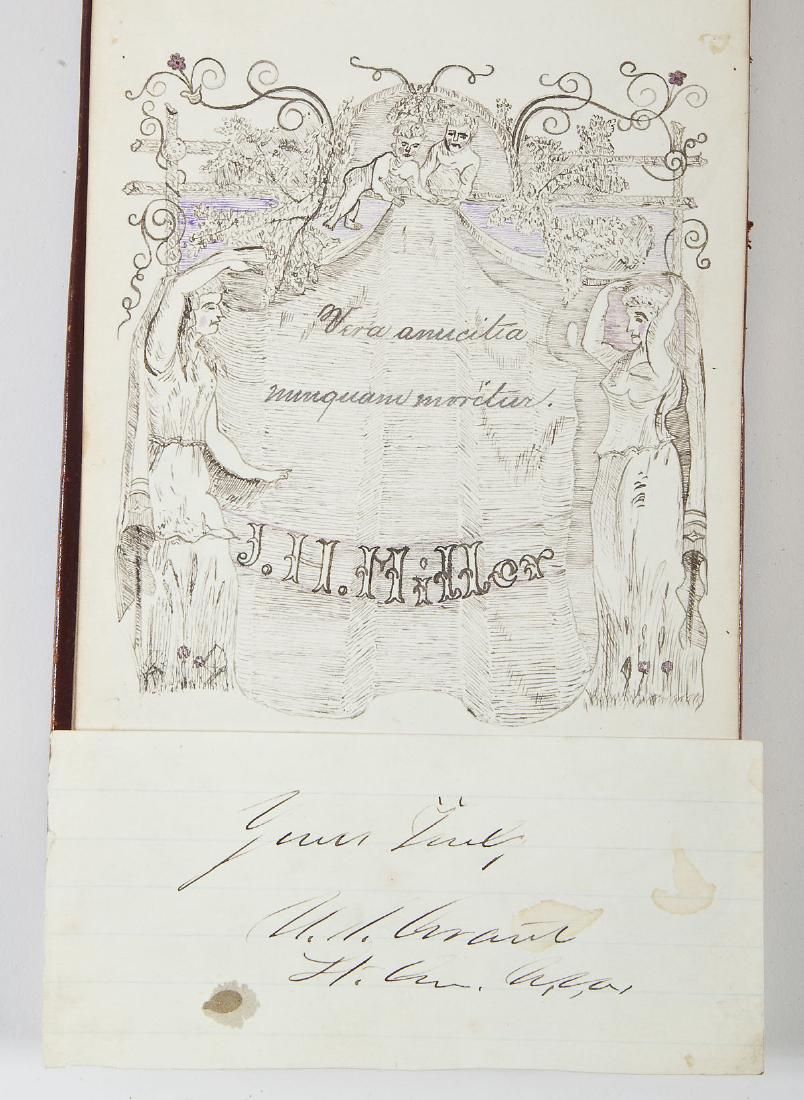 Vera amicitia
nunquam moritur.
J. H. Miller
Yours Truly,
U. S. Grant
Lt. Gen. U.S.A.